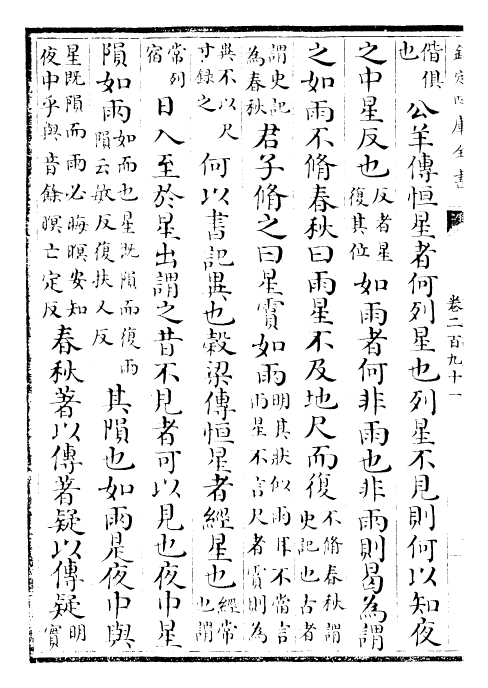 欽定四庫全書
卷二百九十一
偕俱也公羊傳恒星者何列星也列星不見則何以知夜
之中星反也反者星復其位如雨者何非雨也非雨則曷為謂
之如雨不脩春秋曰雨星不及地尺而復不脩春秋謂史記也古者
謂史記為春秋君子脩之曰星霣如雨明其狀似雨耳不當言雨星不言尺者霣則為
異不以尺寸錄之何以書記異也穀梁傳恒星者經星也經常也謂
常列宿日入至於星出謂之昔不見者可以見也夜中星
隕如雨如而也星既隕而復雨隕云敏反復扶又反其隕也如雨是夜中與
星既隕而雨必晦暝安知夜中乎與音餘暝亡定反春秋著以傳著疑以傳疑明實